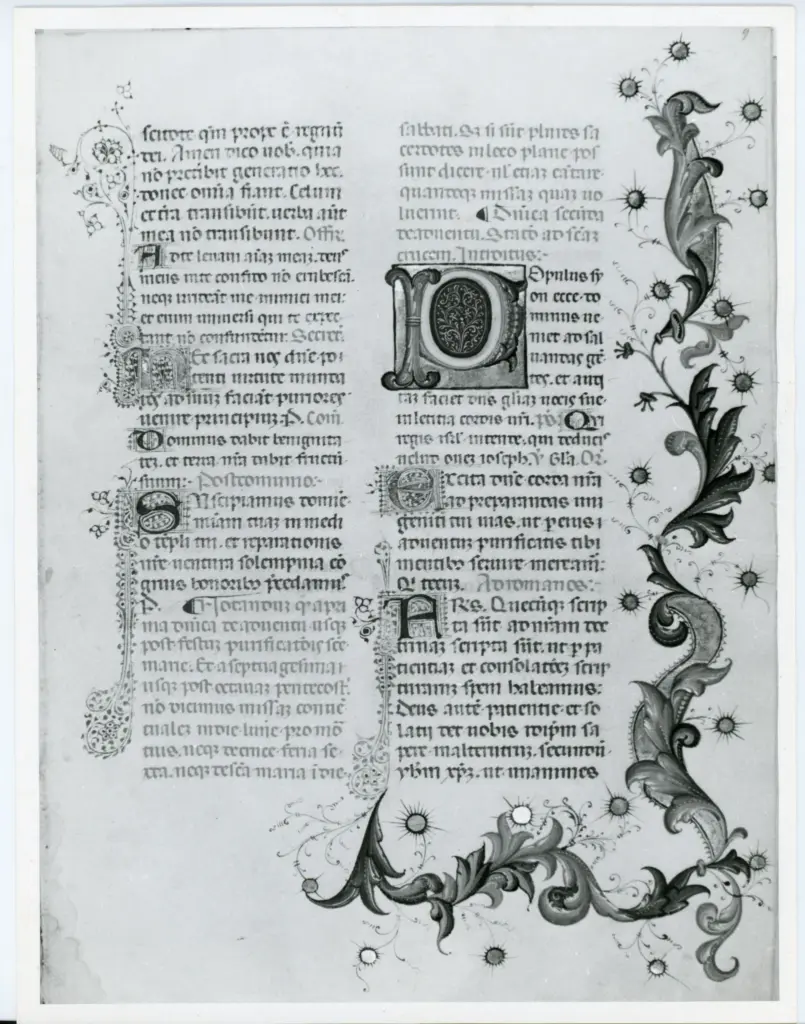 scitote qm prope e regnu
dei. Amen dico uob. quia
no pretibit generatio hec.
donec omia fiant. Celum
et tra transibut. uerba aut
mea no transibunt. Offr.
Ad te leuaui aiaz meaz. deus
meus in te confito no erubesca.
neq; irrideat me inimici mei:
et enim uniuersi qui te expec
tant no confundetur. Secret.
Hec sacra nos dne po
tenti uirtute munda
tos. ad suuz faciat puriores
uenire principiuz. P. Com.
Dominus dabit benignita
tez. et terra nra dabit fructu
suum:- Postcomunio:-
Suscipiamus domie
miam tuaz in medi
o tepli tui. et reparationis
nre uentura solempnia co
gruis honorib; precedamus
P. Notanduz q a pri
ma dnica de aduentu usq;
post festuz purificatois see
marie. Et a septuagesima
usq; post octauaz pentecost.
no dicimus missaz conue
tualez in die lune pro mo
tuis. neq;
xta. neq; de sca maria i die
sabbati. Et si sut plures sa
cerdotes in loco plane pos
sunt dicere. uel etiaz cantare.
quantcq; missaz quaz uo
luerint. Dnica secuda
de aduentu. Stato ad scaz
crucem. Introitus:-
Populus sy
on ecce do
minus ue
niet ad sal
uandas ge
tes. et audi
taz faciet dns gliaz uocis sue
in letitia cordis uri. ps. Qui
regis isrl intende. qui deducis
uelud ouez ioseph. V. Gla. Or.
Excita dne corda nra
ad preparandas uni
geniti tui uias. ut p eius
aduentuz purificatis tibi
mentib; seruire mereamur.
Qi tecuz. Ad romanos:-
Frs. Quecuq; scrip
ta sut ad nram doc
trinaz scripta sut. ut p pa
tientiaz et consolatoez scrip
turaruz spem habeamus:
Deus aute patientie et so
latij det uobis idipm sa
pere in alterutruz. secundu
yhm xpz. ut unanimes